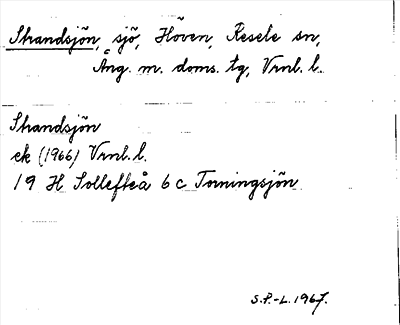 Strandsjön, sjö, Höven, Resele sn,
Ång. m. doms. tg, Vrnl. l.
Strandsjön
ek (1966) Vrnl. l.
19 H Sollefteå 6 c Torningsjön
S.P.-L. 1967.